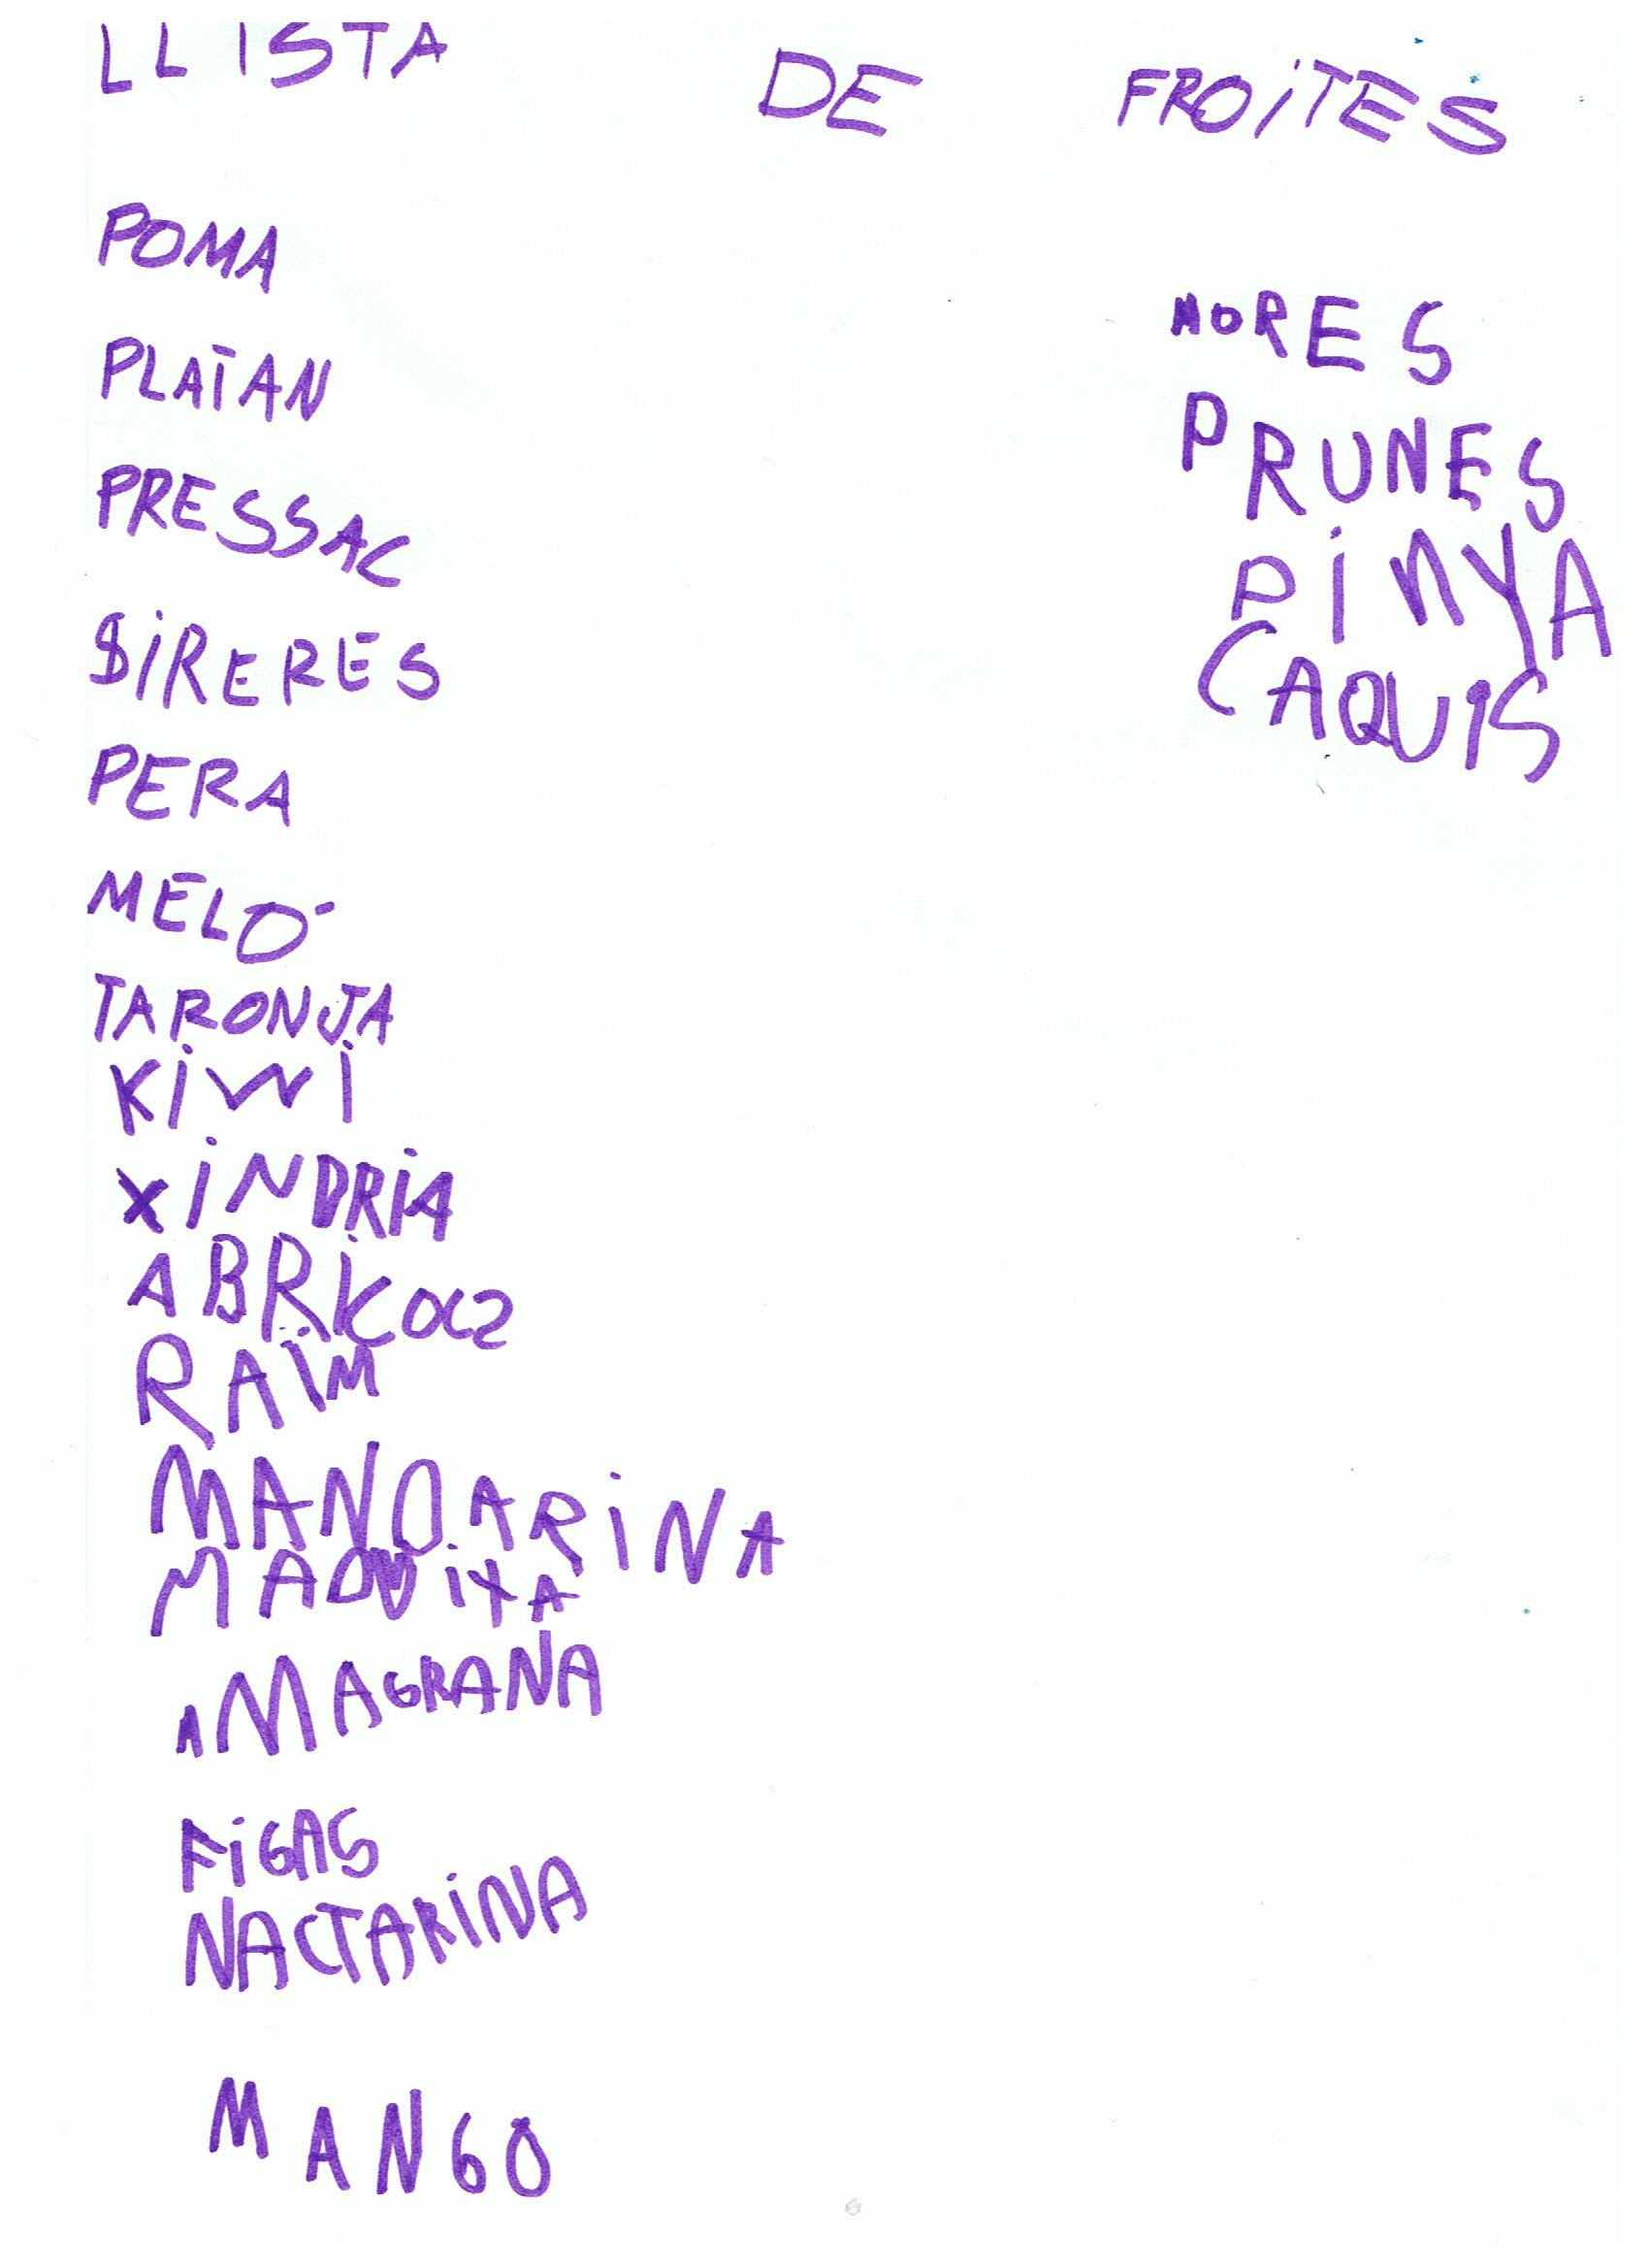 LLISTA DE FROiTES
POMA
PLATAN
PRESSAC
SiRERES
PERA
MELÓ
TARONJA
KiWi
XiNDRiA
ABRiCOC2
RAÏM
MANDARiNA
MADUiXA
MAGRANA
FiGAS
NACTARiNA
MANGO
MORES
PRUNES
PiNYA
CAQUIS